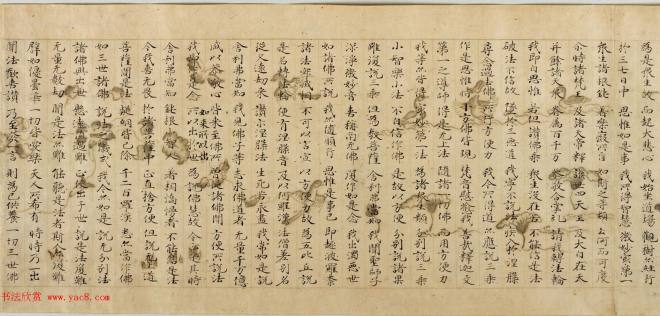 為是衆生故 而起大悲心 我始坐道場 觀樹亦經行
於三七日中 思惟如是事 我所得智慧 微妙最第一
衆生諸根鈍 著樂癡所盲 如斯之等類 云何而可度
尒時諸梵王 及諸天帝釋 護世四天王 及大自在天
并餘諸天衆 眷屬百千萬 恭敬合掌禮 請我轉法輪
我即自思惟 若但讃佛乘 衆生没在苦 不能信是法
破法不信故 墜於三惡道 我寧不說法 疾入於涅槃
尋念過去佛 所行方便力 我今所得道 亦應說三乘
作是思惟時 十方佛皆現 梵音慰喻我 善哉釋迦文
第一之導師 得是无上法 隨諸一切佛 而用方便力
我等亦皆得 最妙第一法 為諸衆生類 分別說三乘
小智樂小法 不自信作佛 是故以方便 分別說諸果
雖復說三乘 但為教菩薩 舍利弗當知 我聞聖師子
深淨微妙音 喜稱南无佛 復作如是念 我出濁惡世
如諸佛所說 我亦隨順行 思惟是事已 即趣波羅奈
諸法寂滅相 不可以言宣 以方便力故 為五比丘說
是名轉法輪 便有涅槃音 及以阿羅漢 法僧差別名
從久遠劫來 讃示涅槃法 生死苦永盡 我常如是說
舍利弗當知 我見佛子等 志求佛道者 无量千万億
咸以恭敬心 皆來至佛所 曾從諸佛聞 方便所說法
我即作是念 如來所以出 為說佛慧故 今正是其時
舍利弗當知 鈍根小智人 著相憍慢者 不能信是法
今我喜无畏 於諸菩薩中 正直捨方便 但說无上道
菩薩聞是法 疑網皆已除 千二百羅漢 悉亦當作佛
如三世諸佛 說法之儀式 我今亦如是 說无分別法
諸佛興出世 懸遠值遇難 正使出于世 說是法復難
无量无數劫 聞是法亦難 能聽是法者 斯人亦復難
譬如優曇華 一切皆愛樂 天人所希有 時時乃一出
聞法歡喜讃 乃至發一言 則為已供養 一切三世佛
书法欣赏
www.yac8.com